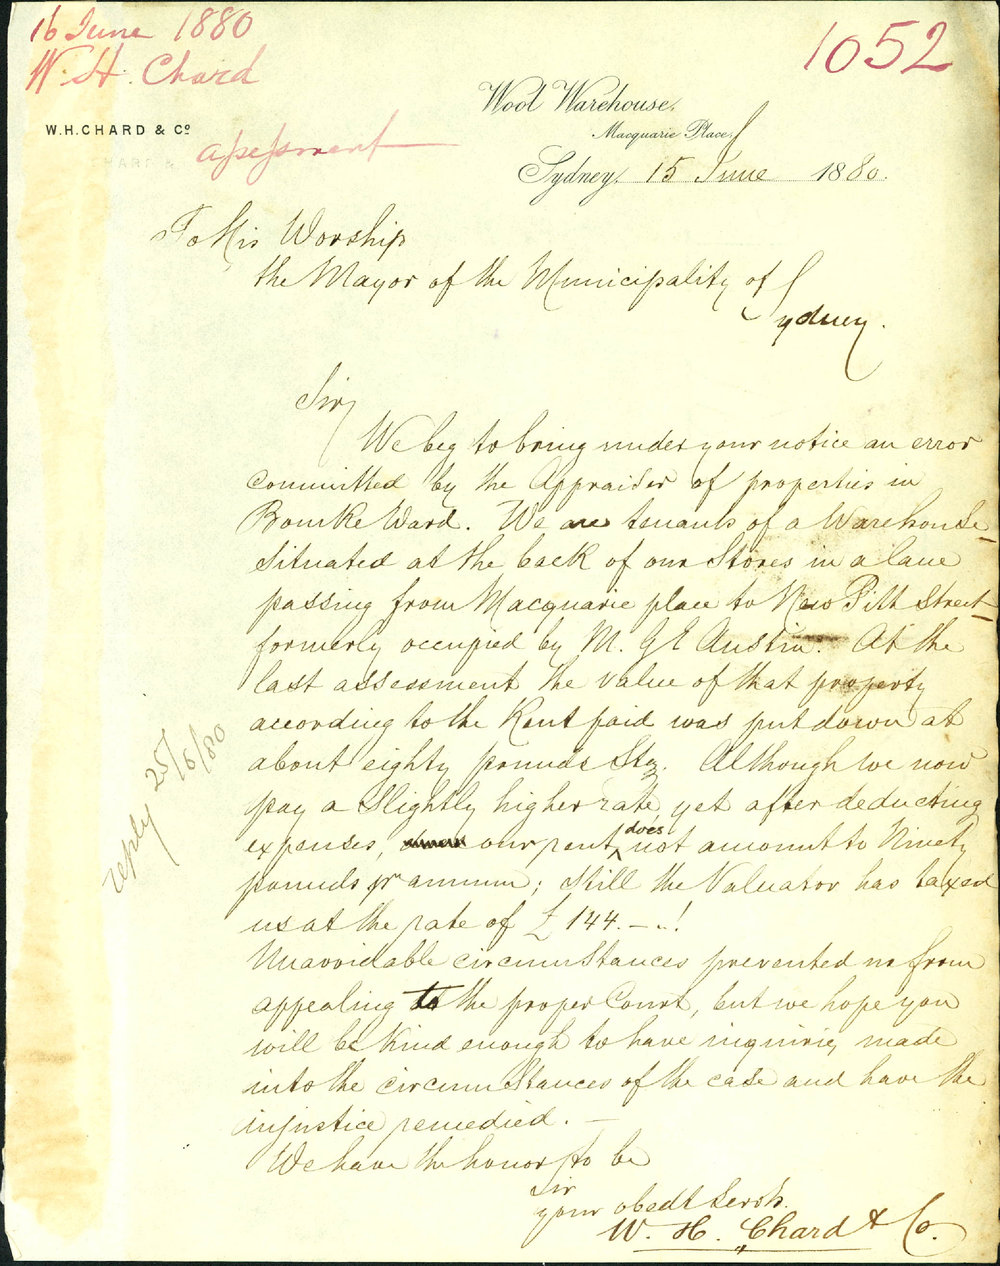 16 June 1880
W. H. Chard
1052
W.H.CHARD & Co
assessment
Wool Warehouse,
Macquarie Place,
Sydney, 15 June 1880.
To His Worship
the Mayor of the Municipality of
Sydney.
Sir,
We beg to bring under your notice an error
committed by the Appraiser of properties in
Bourke Ward. We are tenants of a Warehouse
situated at the back of our Stores in a lane
passing from Macquarie place to New Pitt Street
formerly occupied by M. G E Austin. At the
last assessment the value of that property
according to the Rent paid was put down at
about eighty pounds Stg. Although we now
pay a slightly higher rate, yet after deducting
expenses, our rent does not amount to Ninety
pounds pr annum; still the Valuator has taxed
us at the rate of £144.–.!
Unavoidable circumstances prevented us from
appealing to the proper Court, but we hope you
will be kind enough to have inquiries made
into the circumstances of the case and have the
injustice remedied. –
We have the honor to be
Sir
your obedt servts.
W. H. Chard & Co.
reply 25/6/80